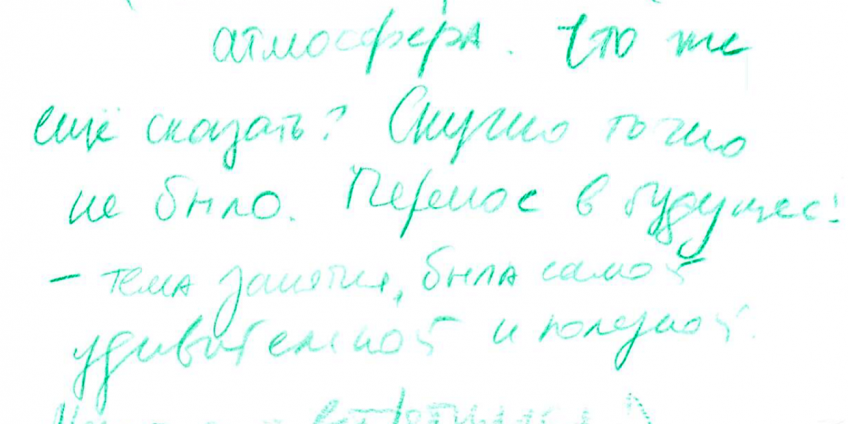 атмосфера. Что же
ещё сказать? Скучно точно
не было. Перенос в будущее!
- тема занятия, была самой
удивительной и полезной.